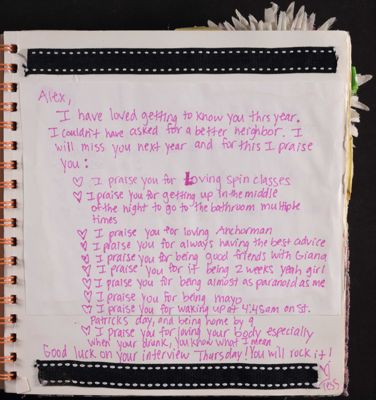 Alex,
I have loved getting to know you this year.
I couldn't have asked for a better neighbor. I
will miss you next year and for this I praise
you:
♡ I praise you for Loving spin classes
♡ I praise you for getting up in the middle
of the night to go to the bathroom multiple
times
♡ I praise you for loving Anchorman
♡ I praise you for always having the best advice
♡ I praise you for being good friends with Giana
♡ I praise you for it being 2 weeks yeah girl
♡ I praise you for being almost as paranoid as me
♡ I praise you for being mayo
♡ I praise you for waking up at 4:45am on St.
Patricks day, and being home by 9
♡ I praise you for loving your body especially
when your drunk, you know what I mean
Good luck on your interview Thursday! You will rock it!
Tess